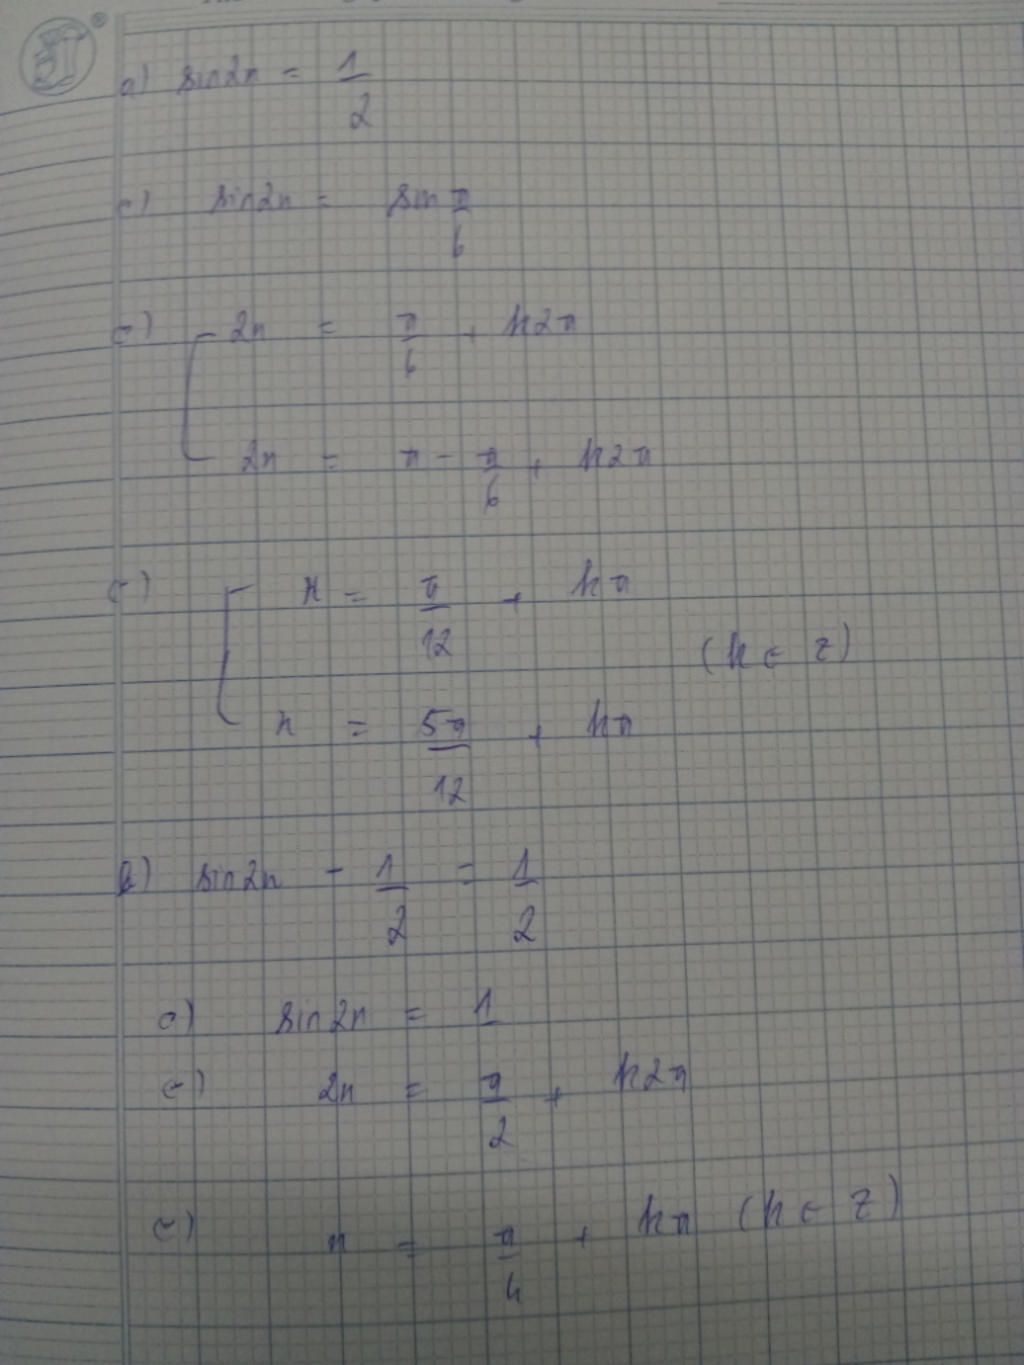 a) sin2x = 1/2
<=> sin2x = sin π/6
<=> [ 2x = π/6 + k2π
2x = π - π/6 + k2π
<=> [ x = π/12 + kπ
(k ∈ Z)
x = 5π/12 + kπ
b) sin2x - 1/2 = 1/2
<=> sin2x = 1
<=> 2x = π/2 + k2π
<=> x = π/4 + kπ (k ∈ Z)